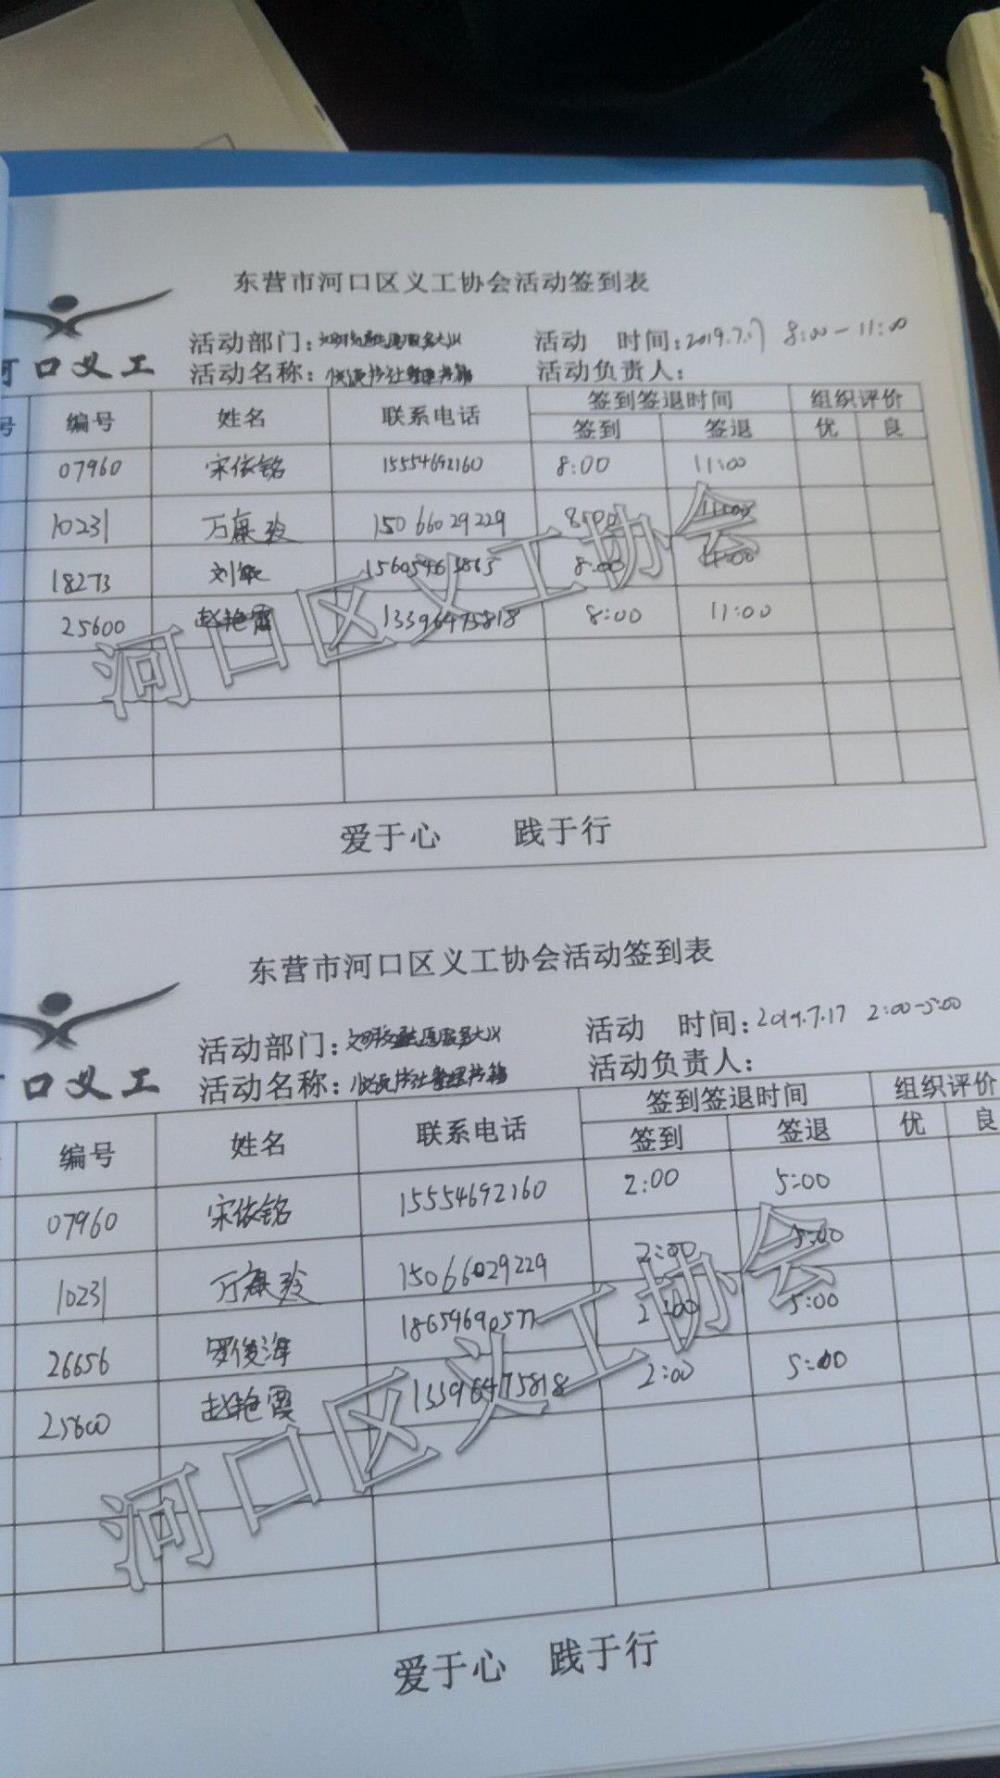 东营市河口区义工协会活动签到表
河口义工
活动部门： 活动 时间：2019.7.17 8:00-11:00
活动名称： 活动负责人：
号 编号 姓名 联系电话 签到签退时间 组织评价
签到 签退 优 良
07960 宋依铭 15554692160 8:00 11:00
10231 万康玲 15066029229 8:00 11:00
18273 刘敏 8:00 11:00
25600 赵艳霞 13396475818 8:00 11:00
河口区义工协会
爱于心 践于行
东营市河口区义工协会活动签到表
口义工
活动部门： 活动 时间：2019.7.17 2:00-5:00
活动名称： 活动负责人：
编号 姓名 联系电话 签到签退时间 组织评价
签到 签退 优 良
07960 宋依铭 15554692160 2:00 5:00
10231 万康玲 15066029229 2:00 5:00
26656 罗俊海 18654690577 2:00 5:00
25600 赵艳霞 13396475818 2:00 5:00
河口区义工协会
爱于心 践于行